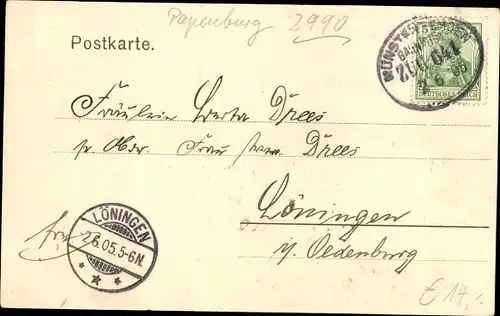 Papenburg 2990
Postkarte.
MÜNSTER EMDEN
BAHNPOST
ZUG 641
2 6 05
DEUTSCHES REICH
Fräulein Berta Drees
p. Adr. Frau Drees
Löningen
i/ Oldenburg
frei
LÖNINGEN
2.6.05.5-6N.
€ 14,-